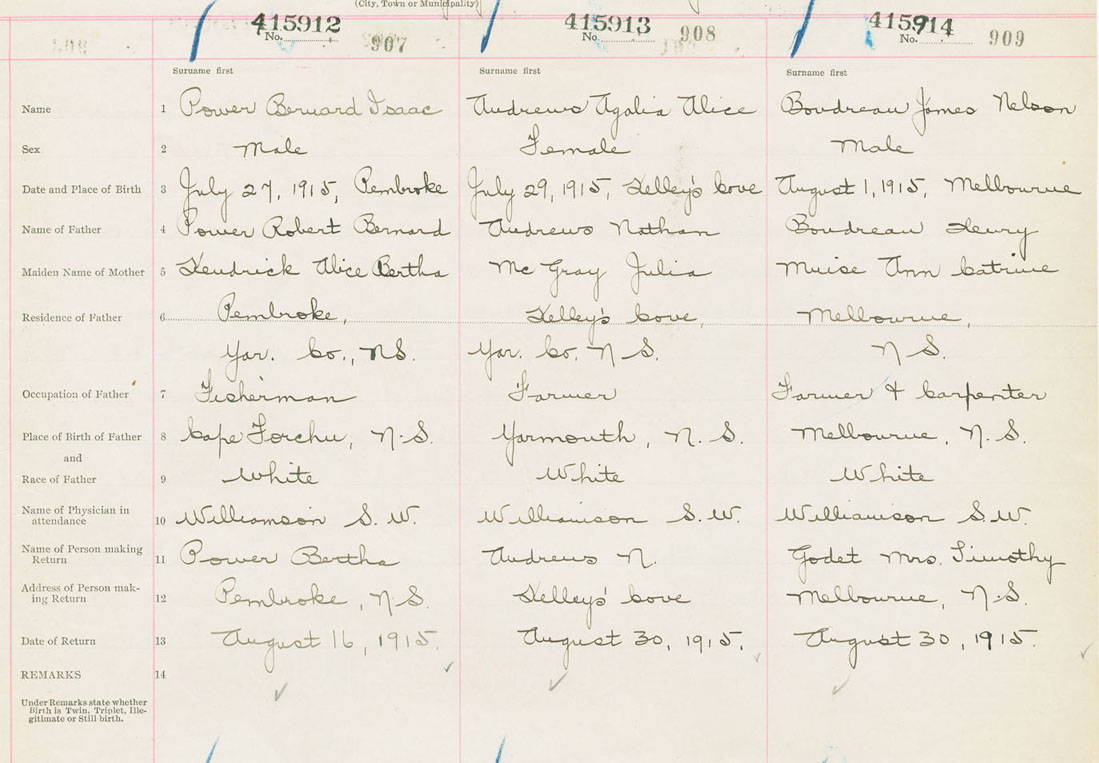 (City, Town or Municipality)
415912 415913 415914
No. 907 No. 908 No. 909
Surname first Surname first Surname first
Name 1 Power Bernard Isaac Andrews Agalia Alice Boudreau James Nelson
Sex 2 Male Female Male
Date and Place of Birth 3 July 27, 1915, Pembroke July 29, 1915, Kelley's Cove August 1, 1915, Melbourne
Name of Father 4 Power Robert Bernard Andrews Nathan Boudreau Henry
Maiden Name of Mother 5 Kendrick Alice Bertha Mc Gray Julia Muise Ann Catrine
Residence of Father 6 Pembroke, Kelley's Cove, Melbourne,
Yar. Co., N.S. Yar. Co, N S. N S.
Occupation of Father 7 Fisherman Farmer Farmer & Carpenter
Place of Birth of Father 8 Cape Forchu, N.S. Yarmouth, N. S. Melbourne, N. S.
and
Race of Father 9 White White White
Name of Physician in
attendance 10 Williamson S. W. Williamson S. W. Williamson S. W.
Name of Person making
Return 11 Power Bertha Andrews N. Godet Mrs. Timothy
Address of Person mak-
ing Return 12 Pembroke, N.S. Kelley's Cove Melbourne, N.S.
Date of Return 13 August 16, 1915. August 30, 1915. August 30, 1915.
REMARKS 14
Under Remarks state whether
Birth is Twin, Triplet, Ille-
gitimate or Still birth.